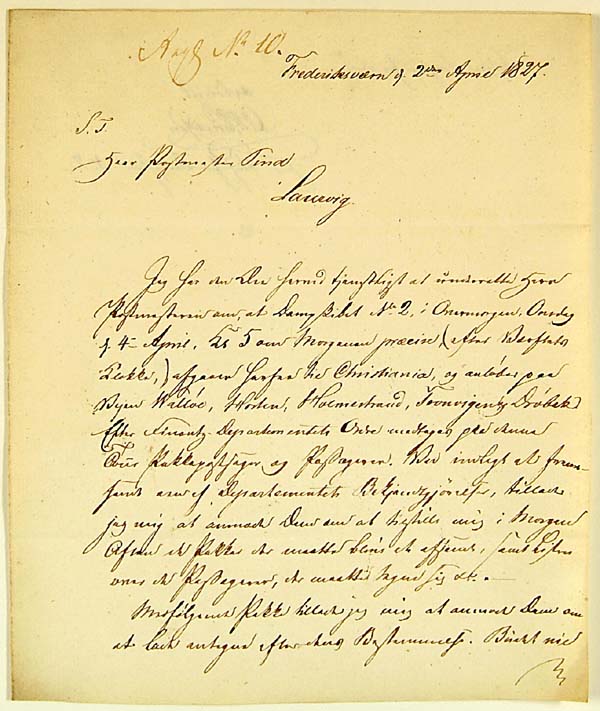 No 10.
Frederiksværn d. 2den April 1827.
S. T.
Herr Postmester Lind
Laurvig.
Jeg har den Ære herved tjenstligst at underrette Herr
Postmesteren om, at Dampskibet No 2, i Overmorgen, Onsdag
d. 4de April, Kl 5 om Morgenen præcise, (efter Værftets
Klokke,) afgaaer herfra til Christiania, og anløber paa
Veyen Walløe, Horten, Holmestrand, Soonvigen og Drøbak
Efter Finantz Departementets Ordre medtages paa denne
Tour Pakkepostsager og Passagerer. Ved indlagt at frem-
sende af Departementets Bekjendtgjørelse, tillader
jeg mig at anmode Dem om at tilstille mig i Morgen
Aften de Pakker der maatte blive at afsende, samt Listen
over de Passagerer, der maatte tegne sig etc.
Medfølgende Pakke tillader jeg mig at anmode Dem om
at lade antegne efter dens Bestemmelse. Brevet ved